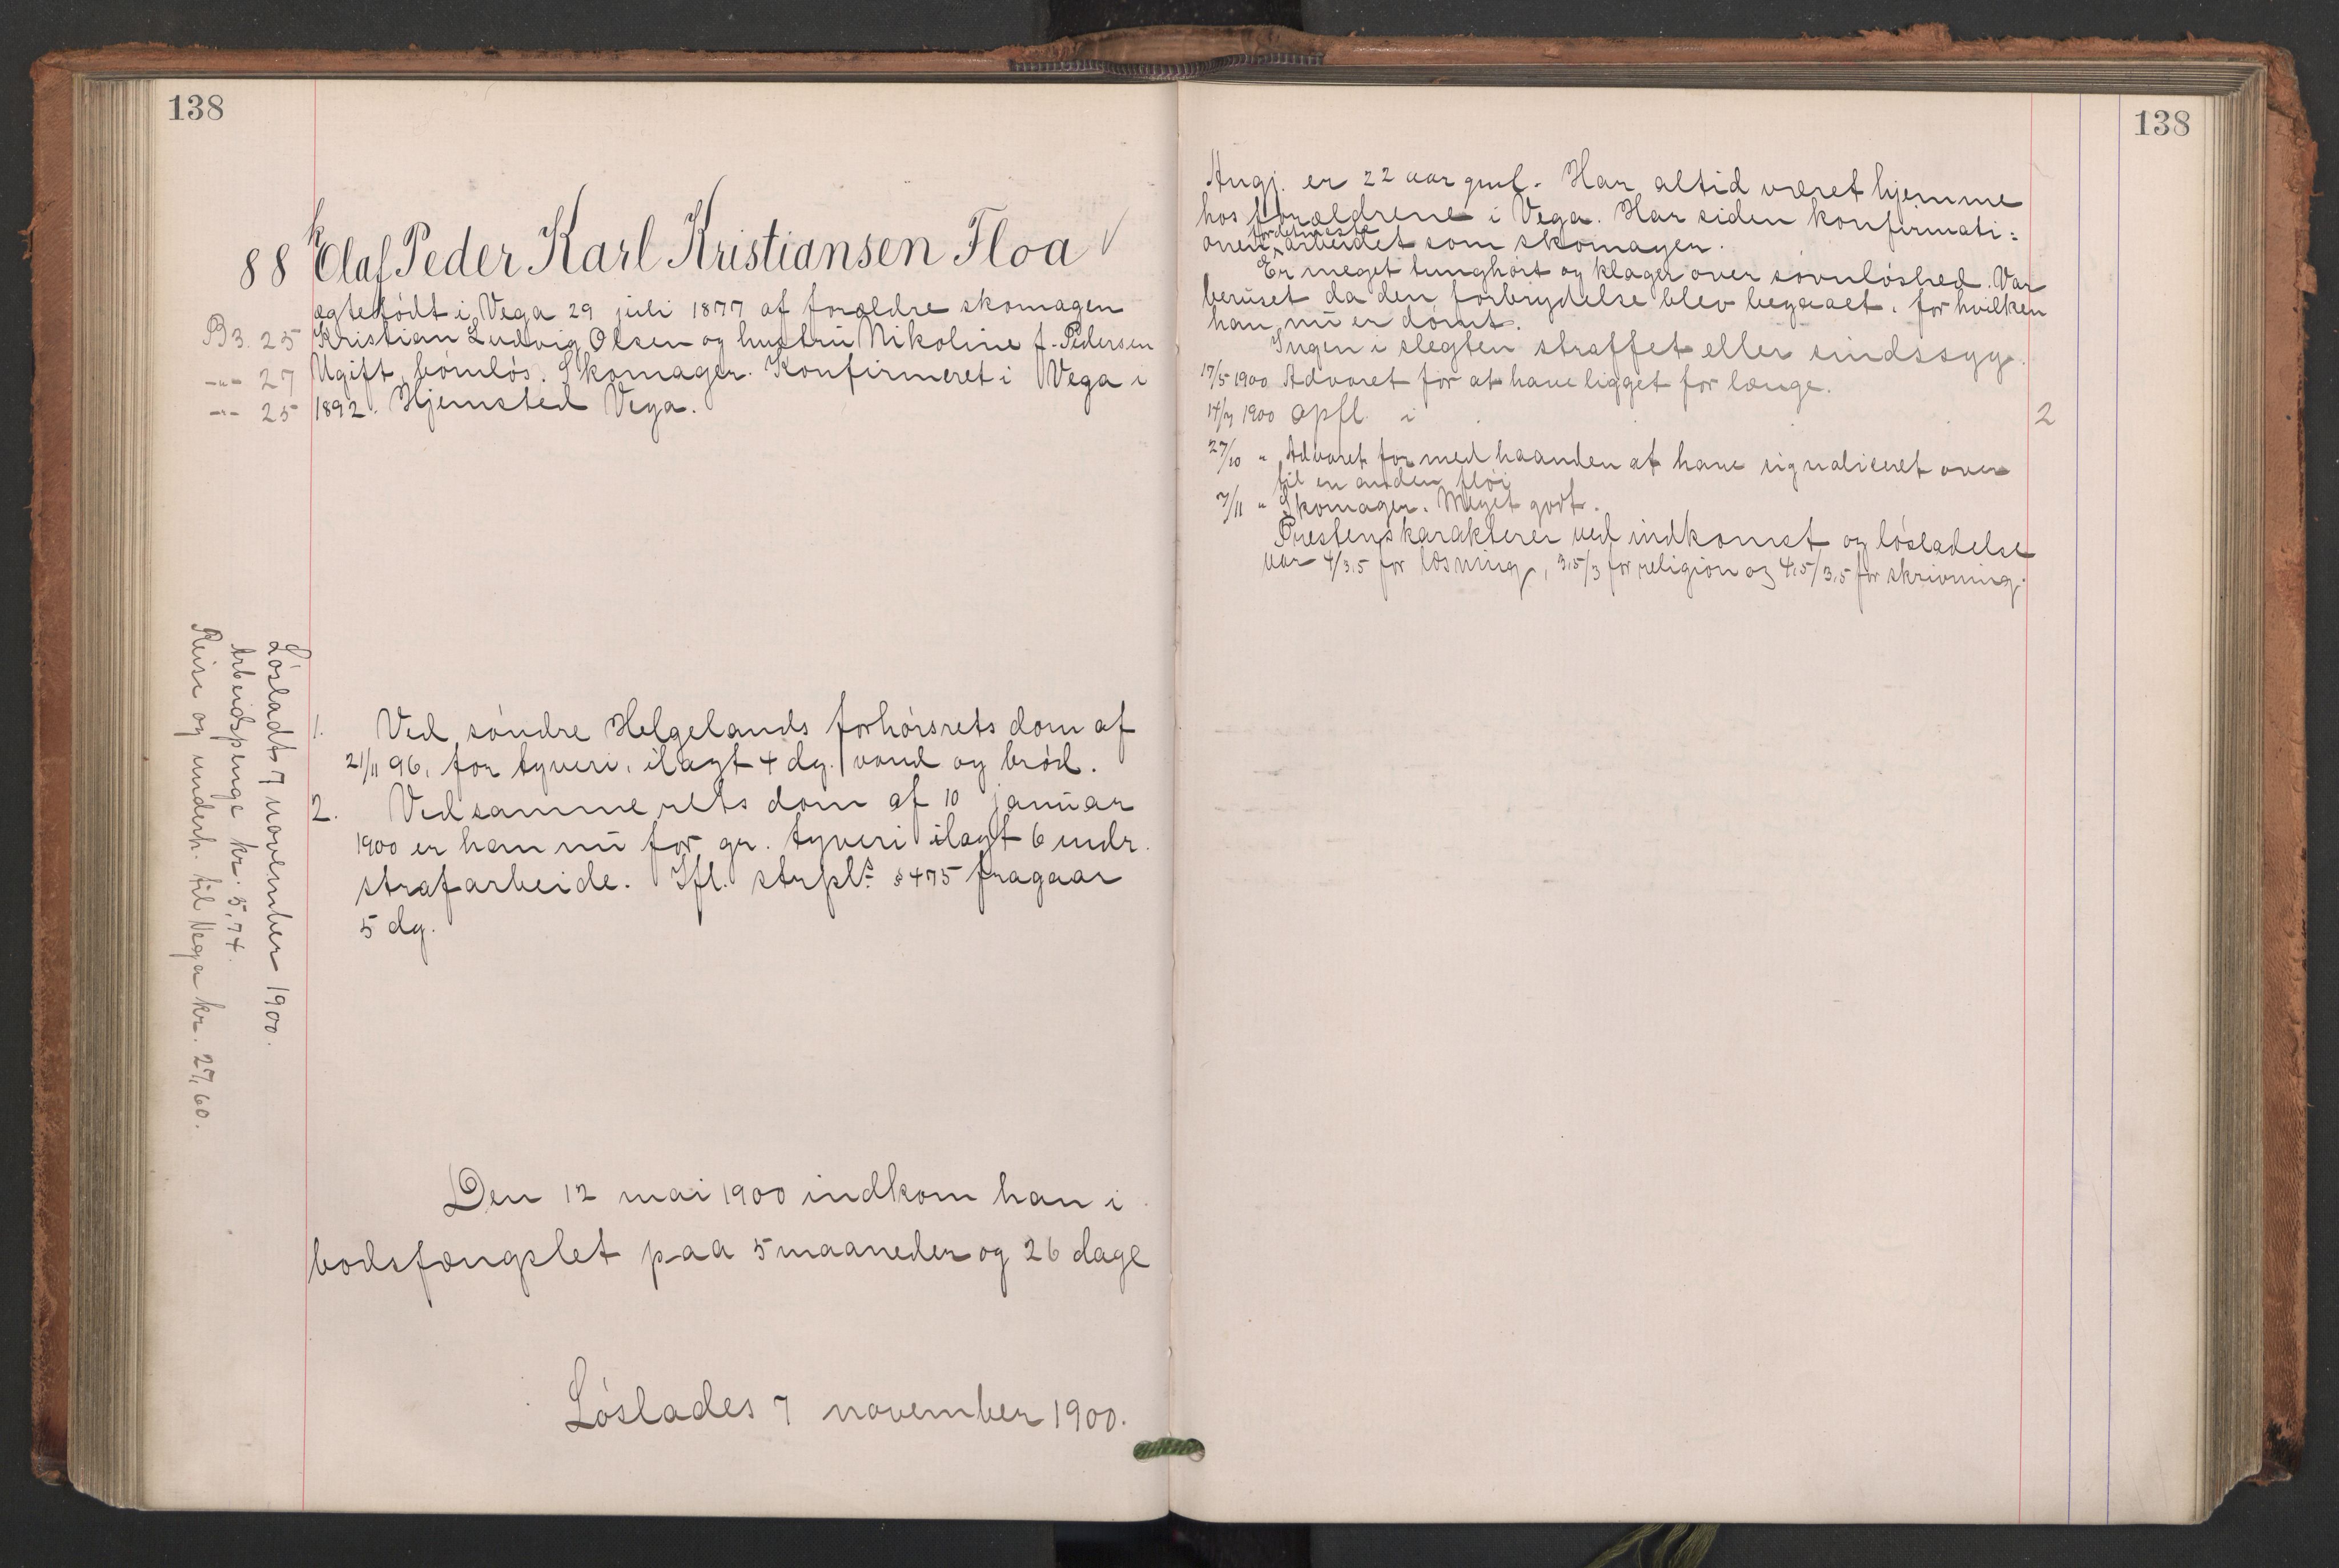 138
88 k Olaf Peder Karl Kristiansen Floa √
ægtefødt i Vega 29 juli 1877 af forældre skomager
B3. 25 Kristian Ludvig Olsen og hustru Nikoline f. Pedersen
-"- 27 Ugift, børnløs. Skomager. Konfirmeret i Vega i
-"- 25 1892. Hjemsted Vega.
1. Ved søndre Helgelands forhørsrets dom af
21/11 96, for tyveri, ilagt 4 dg. vand og brød.
2. Ved samme rets dom af 10 januar
1900 er han nu for gr. tyveri ilagt 6 mdr.
strafarbeide. Ifl. strpl.s § 475 fragaar
5 dg.
Løsladt 7 november 1900.
Arbeidspenge kr. 5,74.
Reise og underh. til Vega kr. 27,60.
Den 12 mai 1900 indkom han i
bodsfængslet paa 5 maaneder og 26 dage
Løslades 7 november 1900.
138
Angj. er 22 aar gml. Har altid været hjemme
hos forældrene i Vega. Har siden konfirmati=
onen fordetmeste arbeidet som skomager.
Er meget tunghørt og klager over søvnløshed. Var
beruset da den forbrydelse blev begaaet, for hvilken
han nu er dømt.
Ingen i slegten straffet eller sindssyg.
17/5 1900 Advaret for at have ligget for længe.
14/7 1900 Opfl. i 2
27/10 " Advaret for med haanden at have signaliseret over
til en anden fløi
7/11 " Skomager. Meget godt.
Prestens karakterer ved indkomst og løsladelse
var 4/3,5 for læsning, 3,5/3 for religion og 4,5/3,5 for skrivning.